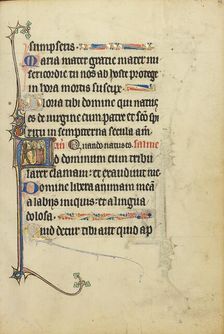 sumpseris
Maria mater gracie mater mi
sericordie tu nos ab hoste protege
in hora mortis suscipe
Gloria tibi domine qui natus
es de virgine cum patre et sancto spi
ritu in sempiterna secula am
an Quando natus es
Ad dominum cum tribu
larer clamavi et exaudivit me
Domine libera animam meam
a labiis iniquis et a lingua
dolosa
Quid detur tibi aut quid ap